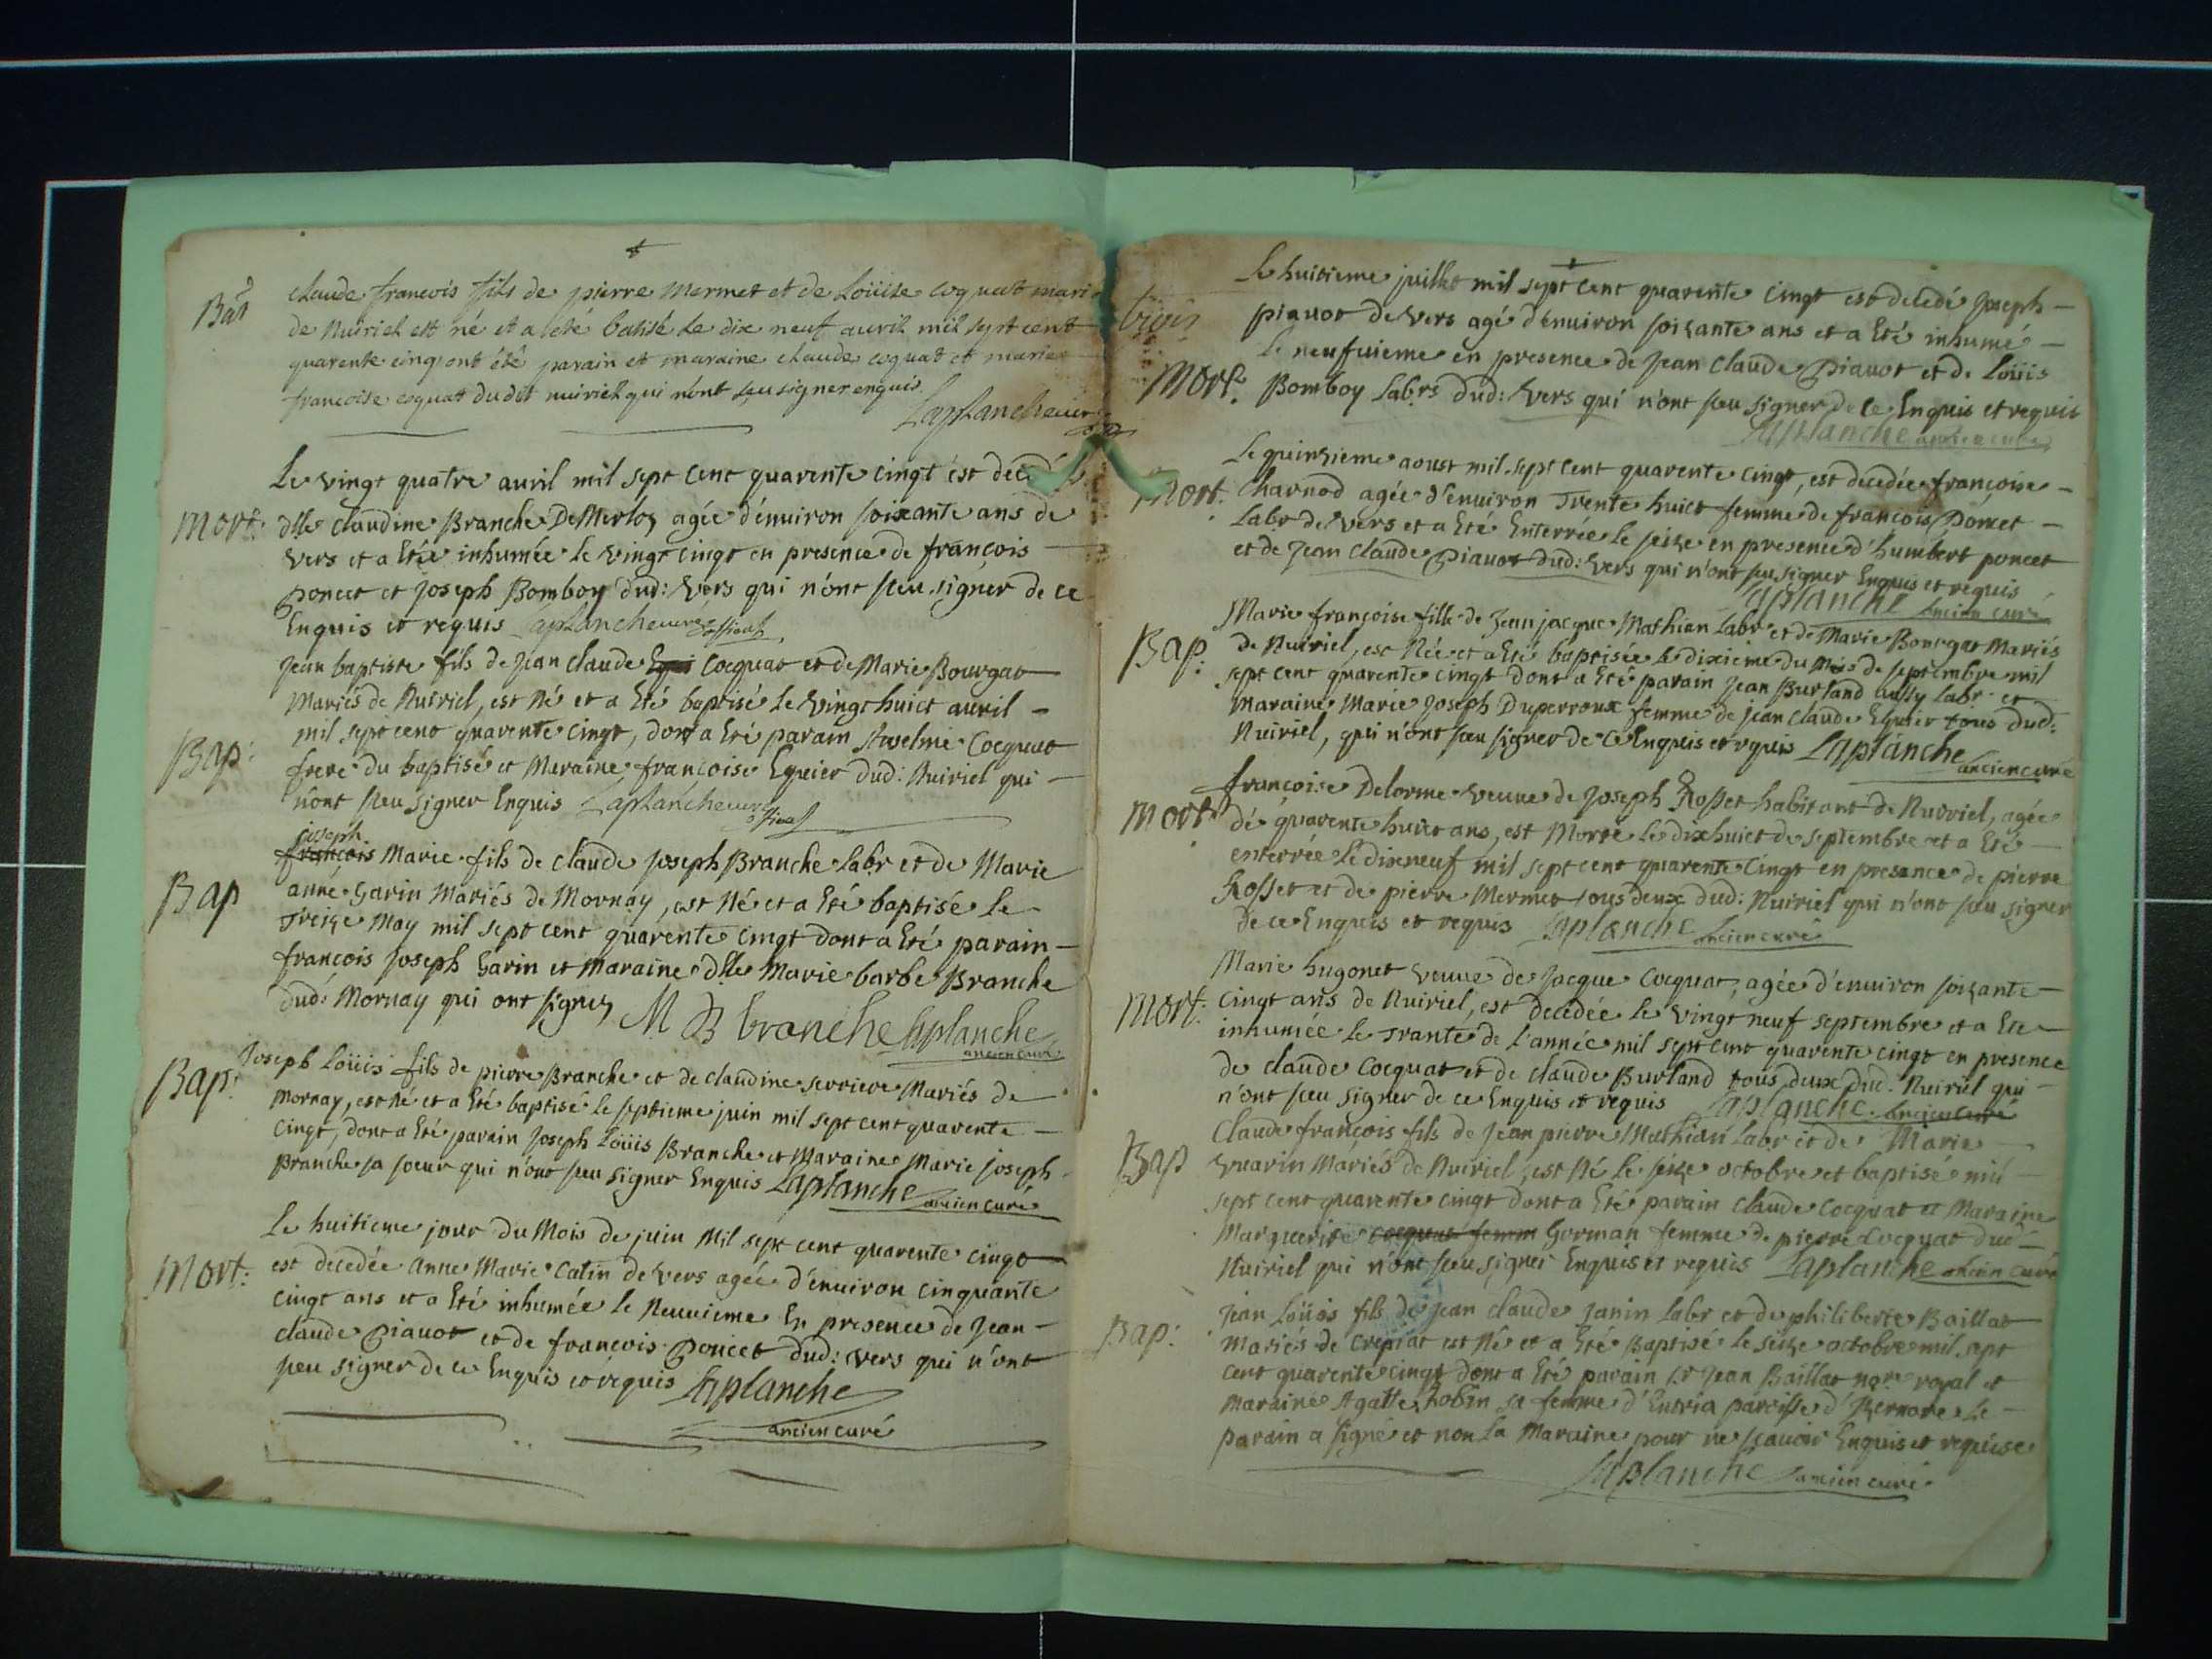 Bap
claude francois fils de pierre mermet et de Loüise coquat marié
de nuiriel est né et a eté batisé le dix neuf auril mil sept cent
quarente cinq ont été parain et maraine claude coquat et marie
francoise coquat dudit nuiriel qui n'ont sçeu signer enquis.
Laplanche curé
Le vingt quatre auril mil sept cent quarente cingt est decedé
mort: dlle claudine Branche De Merloz agée d'enuiron soixante ans de
vers et a Etée inhumée le vingt cingt en presence de françois
poncet et Joseph Bomboy dud: vers qui n'ont sceu signer de ce
Enquis et requis Laplanche curé official
Jean baptiste fils de jean claude Cocquat et de Marie Bourgat
Mariés de Nuiriel, est Né et a Eté baptisé le vingt huict auril
Bap: mil sept cent quarente cingt, dont a Eté parain Anselme Cocquat
frere du baptisé et Maraine françoise Eguier dud: Nuiriel qui
n'ont sceu signer Enquis Laplanche curé official
joseph
françois Marie fils de claude joseph Branche labr et de Marie
Bap anne Garin Mariés de Mornay, est Né et a Eté baptisé le
Treize May mil sept cent quarente cingt dont a Eté parain
françois joseph Garin et maraine dlle Marie barbe Branche
dud: Mornay qui ont signez M B branche Laplanche
ancien curé
Bap: Joseph Loüis fils de pierre Branche et de claudine serriere Mariés de
Mornay, est né et a Eté baptisé le septieme juin mil sept cent quarente
cingt, dont a Eté parain Joseph Loüis Branche et Maraine Marie joseph
Branche sa soeur qui n'ont sceu signer Enquis Laplanche
ancien curé
Le huitieme jour du Mois de juin Mil sept cent quarente cingt
Mort: est decedée anne Marie Catin de vers agée d'enuiron cinquante
cingt ans et a Eté inhumée le Neuuieme En presence de Jean
claude piauot et de françois poncet dud: vers qui n'ont
sceu signer de ce Enquis et requis Laplanche
ancien curé
Le huitieme juillet mil sept cent quarente cingt est decedé joseph
piauot de vers agé d'enuiron soizante ans et a Eté inhumé
le neufuieme en presence de jean claude piauot et de Loüis
Mort: Bomboy Labrs dud: vers qui n'ont sceu signer de ce Enquis et requis
Laplanche ancien curé
Le quinzieme aoust mil sept cent quarente cingt, est decedée françoise
Mort. Charnod agée d'enuiron Trente huict femme de francois Poncet
Labr de vers et a Eté Enterrée le seize en presence d'humbert poncet
et de Jean Claude Piauot dud: vers qui n'ont sceu signer Enquis et requis
Laplanche ancien curé
Marie françoise fille de Jean jacque Mathian Labr et de Marie Bourgat Mariés
Bap: de Nuiriel, est Née et a Eté baptisée le dixieme du Mois de septembre mil
sept cent quarente cingt dont a Eté parain Jean Burland labr et
maraine Marie Joseph Duperroux femme de jean claude Eguier tous dud:
Nuiriel, qui n'ont sceu signer de ce Enquis et requis Laplanche
ancien curé
françoise Delorme veuue de Joseph Rosset habitant de Nuiriel, agée
mort de quarente huict ans, est Morte le dixhuict de septembre et a Eté
enterrée le dixneuf mil sept cent quarente cingt en presance de pierre
Rosset et de pierre Mermet tous deux dud: Nuiriel qui n'ont sceu signer
de ce Enquis et requis Laplanche ancien curé
Marie hugonet veuue de jacque Cocquat, agée d'enuiron soizante
Mort: cingt ans de Nuiriel, est decedée le vingt neuf septembre et a Ete
inhumée le Trante de l'année mil sept cent quarente cingt en presence
de claude Cocquat et de claude Burland tous deux dud. Nuiriel qui
n'ont sceu signer de ce Enquis et requis Laplanche ancien curé
Claude françois fils de Jean pierre Mathian labr et de Marie
Bap Vuarin Mariés de Nuiriel, est Né le seize octobre et baptisé mil
sept cent quarente cingt dont a Eté parain claude Cocquat et Maraine
Marguerite cocquat femm Gorman femme de pierre Cocquat dud
Nuiriel qui n'ont sceu signer Enquis et requis Laplanche ancien curé
Jean Loüis fils de jean claude janin labr et de philiberte Baillat
Bap: Mariés de crepiat est Né et a Eté Baptisé le seize octobre mil sept
cent quarente cingt dont a Eté parain Sr Jean Baillat nore royal et
maraine Agatte Robin sa femme d'Entria paroisse d'Izernore le
parain a signé et non la Maraine pour ne sçauoir Enquis et requise
Laplanche ancien curé